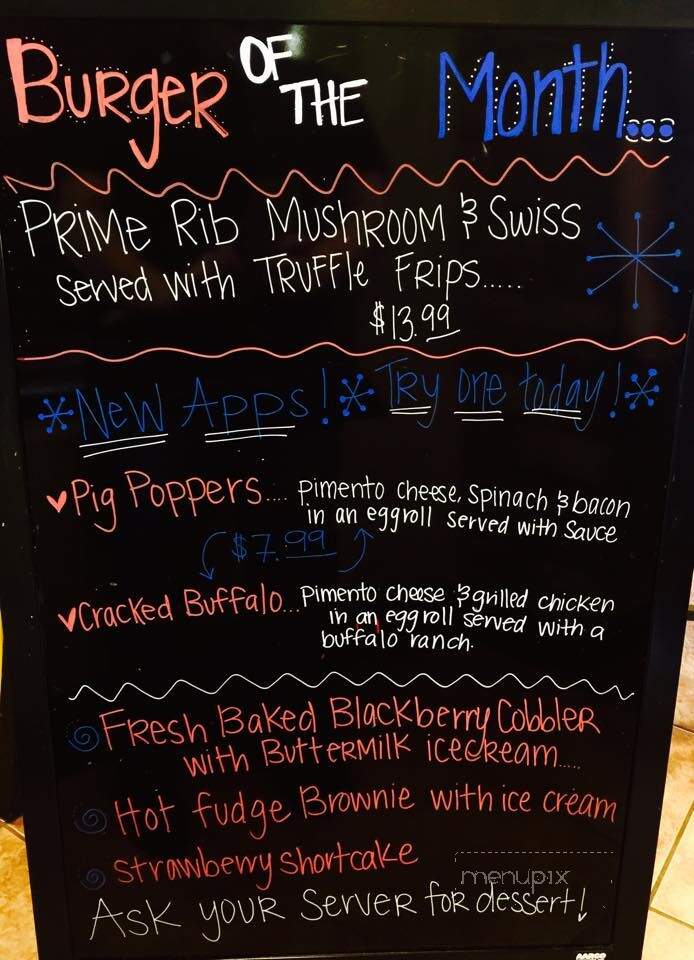 Burger OF THE Month...
Prime Rib Mushroom & Swiss
served with Truffle Frips.....
$13.99
New Apps! Try one today!
Pig Poppers.... Pimento cheese, spinach & bacon
in an eggroll served with sauce
$7.99
Cracked Buffalo... Pimento cheese & grilled chicken
in an eggroll served with a
buffalo ranch.
Fresh Baked Blackberry Cobbler
with Buttermilk icecream.....
Hot fudge Brownie with ice cream
strawberry shortcake
menupix
Ask your Server for dessert!